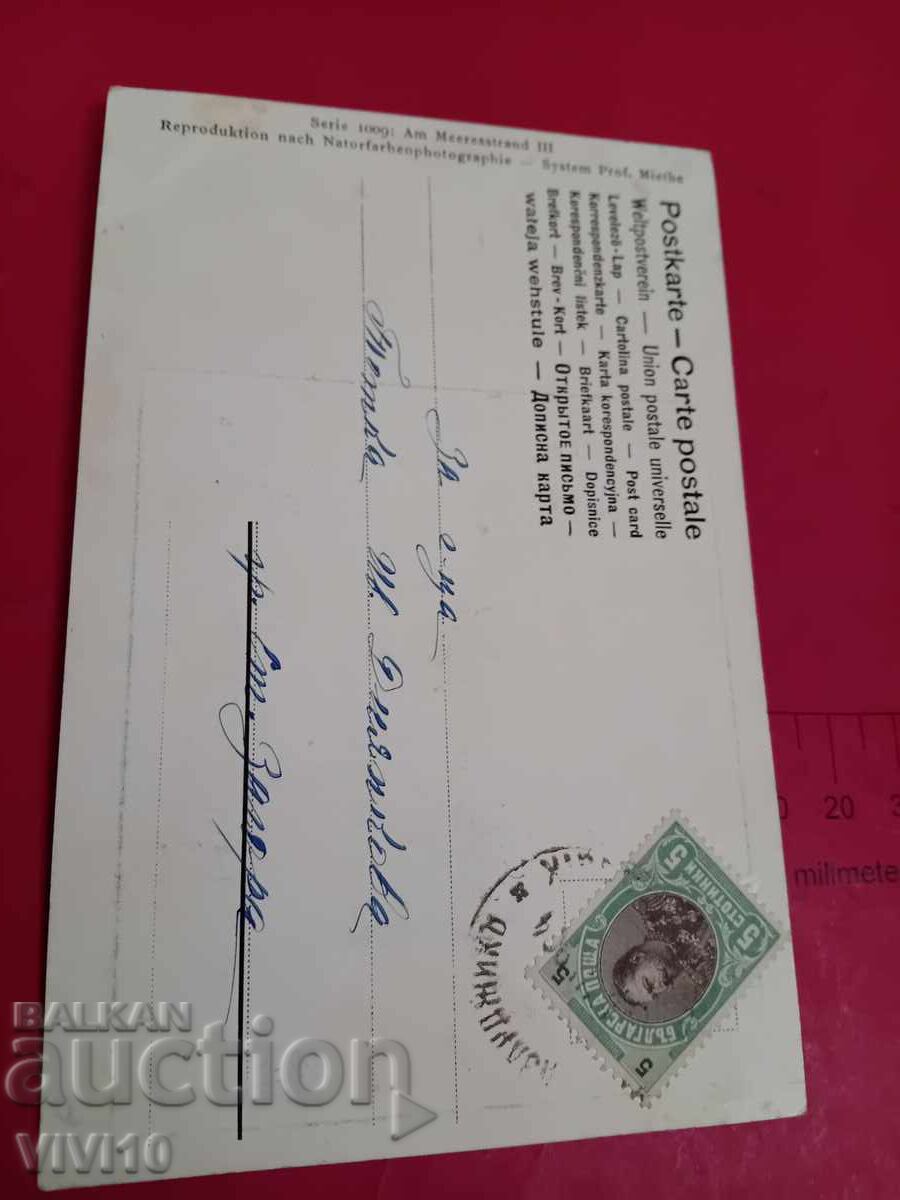 Serie 1009: Am Meeresstrand III
Reproduktion nach Naturfarbenphotographie — System Prof. Miethe
Postkarte — Carte postale
Weltpostverein — Union postale universelle
Levelező-Lap — Cartolina postale — Post card
Korrespondenzkarte — Karta korespondencyjna —
Korespondenční lístek — Briefkaart — Dopisnice
Brefkort — Brev-Kort — Открытое письмо —
wateja wehstule — Дописна карта
За г-ца
Ив.
гр. Ст. Загора
БЪЛГАРСКА ПОЩА
5 СТОТИНКИ 5
5
5
20
milimete
BALKAN
auction
VIVI10